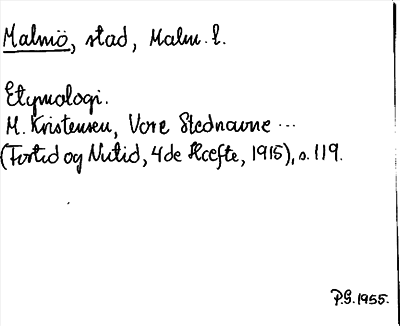 Malmö, stad, Malm. l.
Etymologi.
M. Kristensen, Vore Stednavne ...
(Fortid og Nutid, 4de Hæfte, 1915), s. 119.
P.G. 1955.